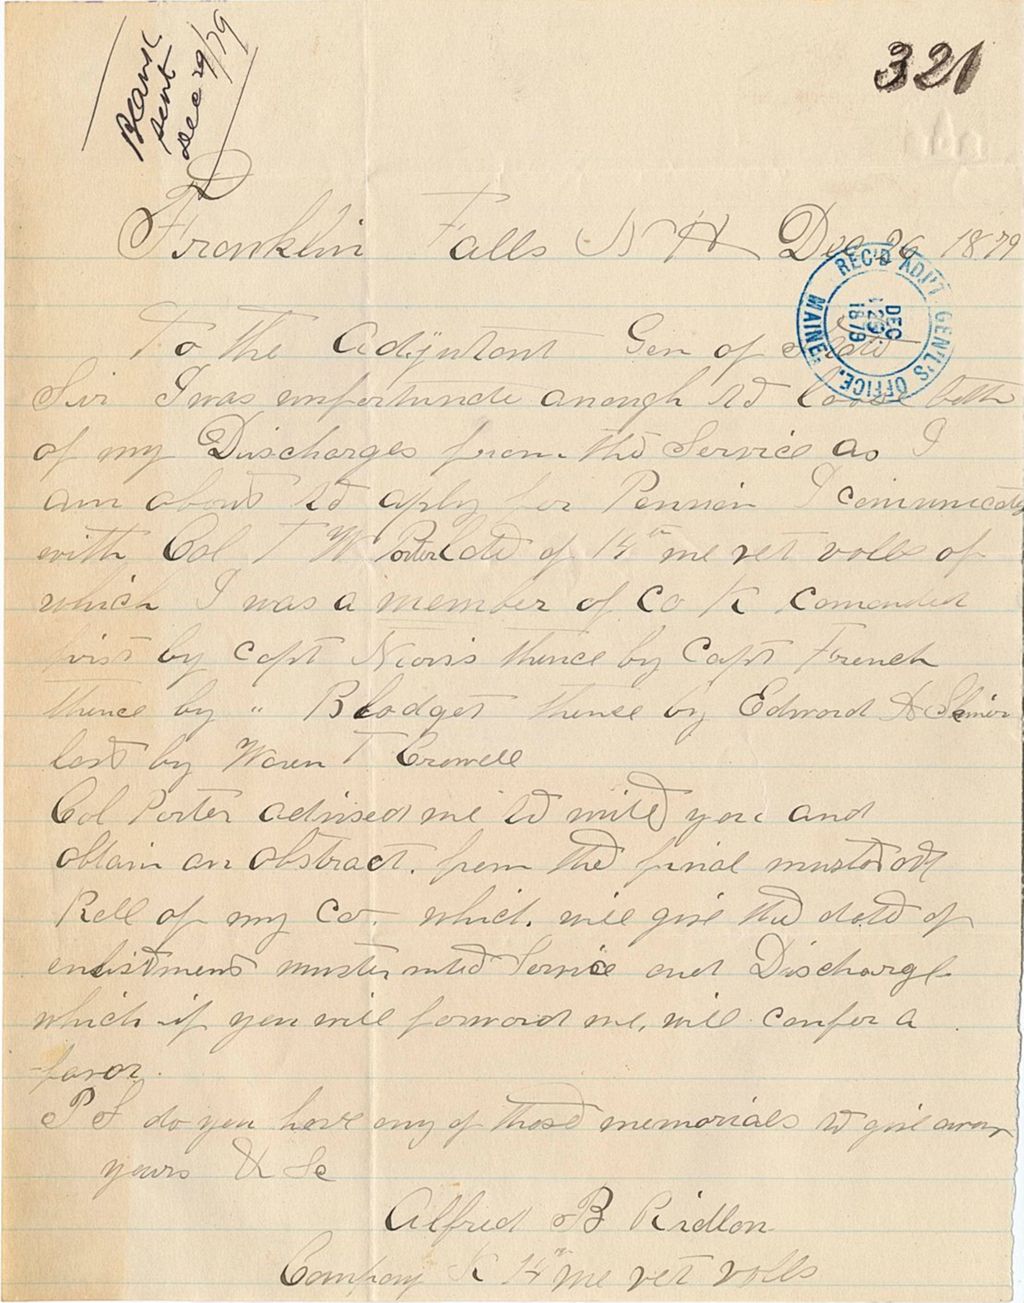 Blank
sent
Dec 29/79
321
Franklin Falls N H Dec 26 1879
REC'D ADJ'T GEN'L'S OFFICE, MAINE.
DEC
29
1879
To the Adjutant Gen of State
Sir I was unfortunate anough to loose both
of my Discharges from the Service as I
am about to aply for Pension I comunicated
with Col T W Porter late of 14th me vet volls of
which I was a member of Co K Comended
first by Capt Neoris thence by Capt French
thence by " Blodget thence by Edword A
last by Waren T Crowell
Col Porter advised me to write you and
obtain an abstract. from the final muster out
Roll of my Co. which. will give the date of
enlistment muster into Service and Discharge
which if you will forword me, will confer a
favor.
P S do you have any of those memorials to give away
yours &c &c
Alfred B Ridlon
Company K 14th me vet volls